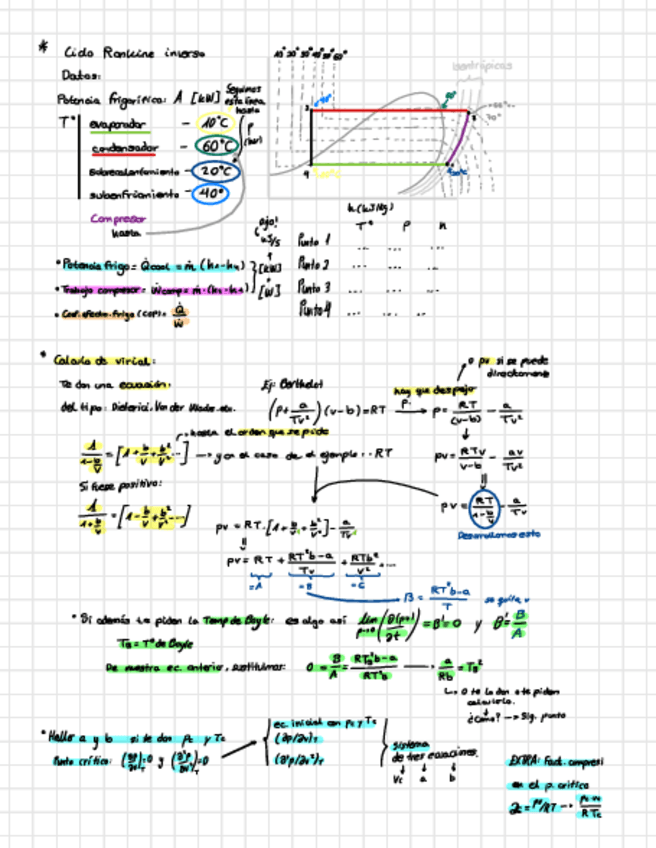 * Ciclo Rankine inverso
Datos:
Potencia frigorífica: A [kW]
Seguimos esta línea hasta
T°
evaporador - 10°C
condensador - 60°C
P (bar)
sobrecalentamiento - 20°C
subenfriamiento - 40°
Compresor
hasta
10° 20° 30° 40° 50° 60°
isentrópicas
h (kJ/kg)
ojo!
kJ/s
T° P h
Punto 1 ... ... ...
Punto 2 ... ... ...
Punto 3 ... ... ...
Punto 4 ... ... ...
• Potencia frigo = Q̇cool = ṁ (h₁-h₄) [kW]
• Trabajo compresor = Ẇcomp = ṁ (h₂-h₁) [W]
• Coef. efecto frigo (COP) = Q̇/Ẇ
* Calculo de virial:
Te dan una ecuación,
del tipo: Dieterici, Van der Waals, etc.
Ej: Berthelot
(P + a/Tv²)(v-b) = RT
hay que despejar
P.
p = RT/(v-b) - a/Tv²
o pv si se puede directamente
pv = RTv/(v-b) - av/Tv²
pv = RT/(1-b/v) - a/Tv
Desarrollamos esto
hasta el orden que se pida
1/(1-b/v) = [1 + b/v + b²/v² ...] → y en el caso de el ejemplo · RT
Si fuese positivo:
1/(1+b/v) = [1 - b/v + b²/v² - ...]
pv = RT · [1 + b/v + b²/v²] - a/Tv
pv = RT + (RT²b-a)/Tv + RTb²/v² + ...
=A =B =C
B = (RT²b-a)/T
• Si además te piden la Temp de Boyle: es algo así lim p→0 (∂(pv)/∂p) = B' = 0 y B' = B/A
T_B = T° de Boyle
De nuestra ec. anterior, sustituimos: 0 = B/A = (RT_B²b-a)/RT²b → a/Rb = T_B²
↳ O te lo dan o te piden calcularlo.
¿Cómo? → Sig. punto
• Hallar a y b si te dan Pc y Tc
Punto crítico: (∂p/∂v)_T = 0 y (∂²p/∂v²)_T = 0
ec. inicial con pc y Tc
(∂p/∂v)_T
(∂²p/∂v²)_T
sistema de tres ecuaciones.
Vc a b
EXTRA: Fact. compresi
en el p. crítico
Z = PV/RT → Pc vc/R Tc